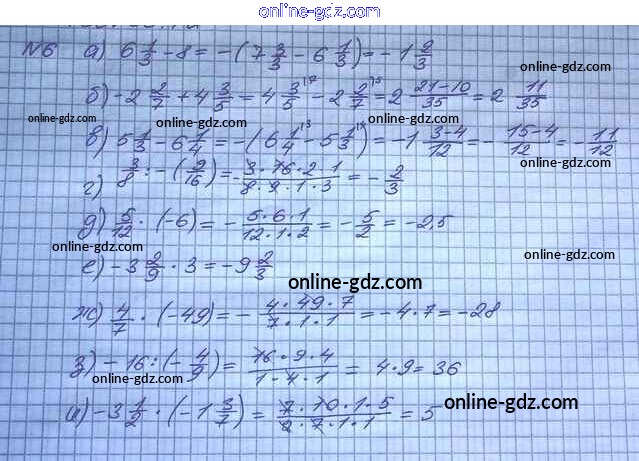 online-gdz.com
№6 а) 6 1/3 - 8 = -(7 3/3 - 6 1/3) = -1 2/3
online-gdz.com
б) -2 2/7 + 4 3/5 = 4 3/5 ¹⁷ - 2 2/7 ¹⁵ = 2 21-10/35 = 2 11/35
online-gdz.com
online-gdz.com
в) 5 1/3 - 6 1/4 = -(6 1/4 ¹³ - 5 1/3 ¹⁴) = -1 3-4/12 = - 15-4/12 = - 11/12
online-gdz.com
г) 3/8 : -(9/16) = - 3·16·2·1/8·9·1·3 = - 2/3
online-gdz.com
д) 5/12 · (-6) = - 5·6·1/12·1·2 = - 5/2 = -2,5
online-gdz.com
е) -3 2/9 · 3 = -9 2/3
online-gdz.com
ж) 4/7 · (-49) = - 4·49·7/7·1·1 = -4·7 = -28
з) -16 : (- 4/9) = 16·9·4/1·4·1 = 4·9 = 36
online-gdz.com
и) -3 1/2 · (-1 3/7) = 7·10·1·5/2·7·1·1 = 5
online-gdz.com
online-gdz.com